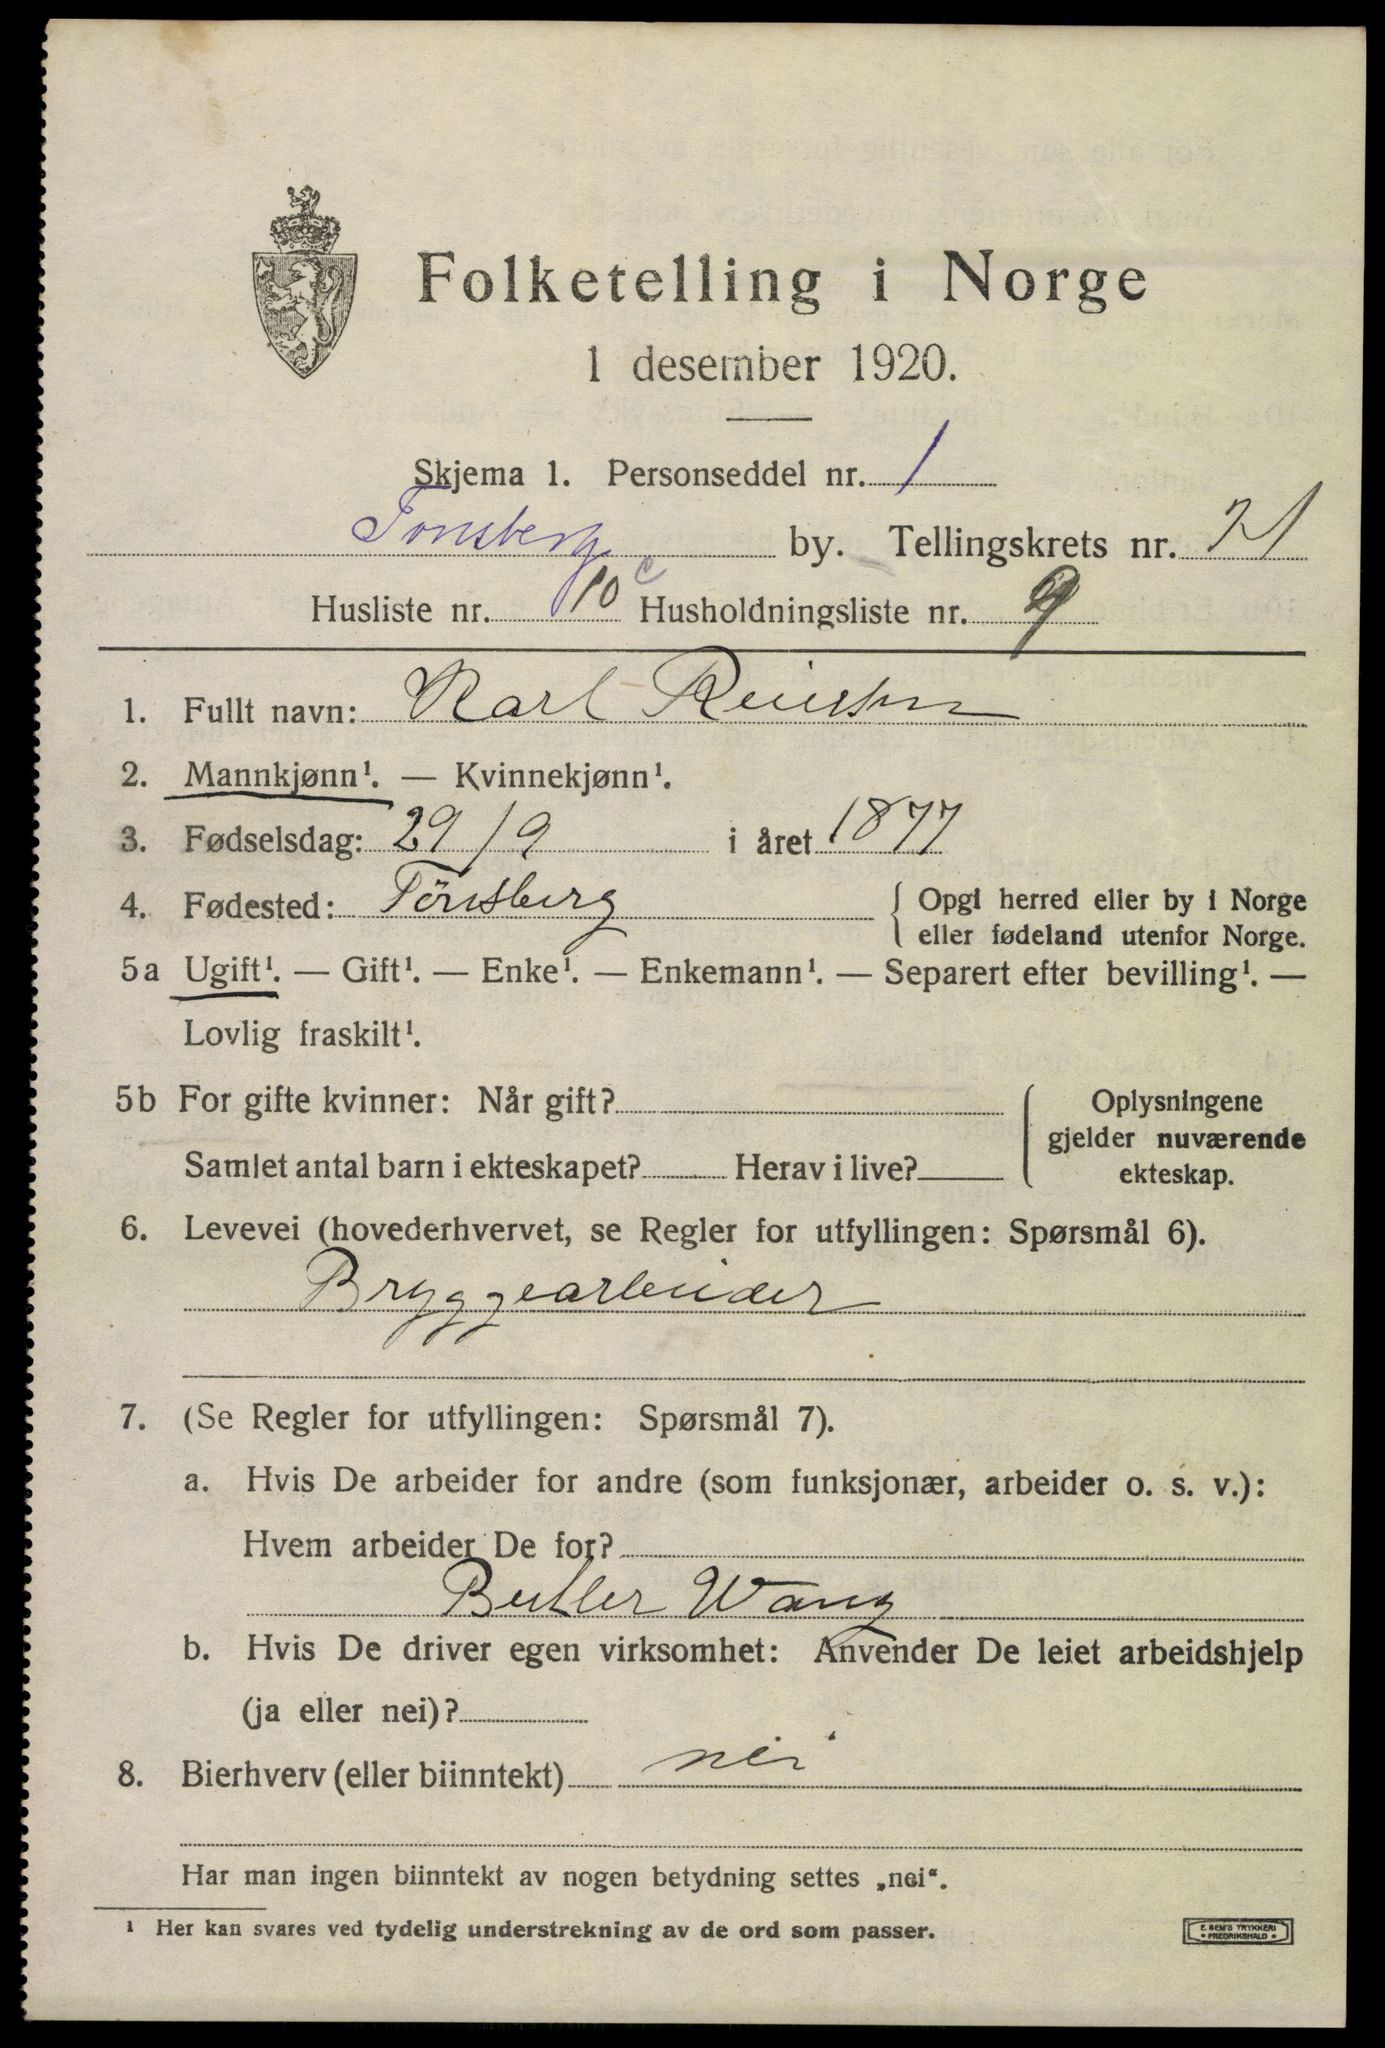 Folketelling i Norge
1 desember 1920.
Skjema 1. Personseddel nr. 1
Tønsberg by. Tellingskrets nr.
Husliste nr. 10 c Husholdningsliste nr. 9
1. Fullt navn: Karl
2. Mannkjønn¹. — Kvinnekjønn¹.
3. Fødselsdag: 29/9 i året 1877
4. Fødested: Tönsberg { Opgi herred eller by i Norge
eller fødeland utenfor Norge.
5a Ugift¹. — Gift¹. — Enke¹. — Enkemann¹. — Separert efter bevilling¹. —
Lovlig fraskilt¹.
5b For gifte kvinner: Når gift? { Oplysningene
gjelder nuværende
Samlet antal barn i ekteskapet? Herav i live? ekteskap.
6. Levevei (hovederhvervet, se Regler for utfyllingen: Spørsmål 6).
Bryggearbeider
7. (Se Regler for utfyllingen: Spørsmål 7).
a. Hvis De arbeider for andre (som funksjonær, arbeider o. s. v.):
Hvem arbeider De for?
Butler Wang
b. Hvis De driver egen virksomhet: Anvender De leiet arbeidshjelp
(ja eller nei)?
8. Bierhverv (eller biinntekt) nei
Har man ingen biinntekt av nogen betydning settes „nei“.
¹ Her kan svares ved tydelig understrekning av de ord som passer.
E. SEM'S TRYKKERI
• FREDRIKSHALD •